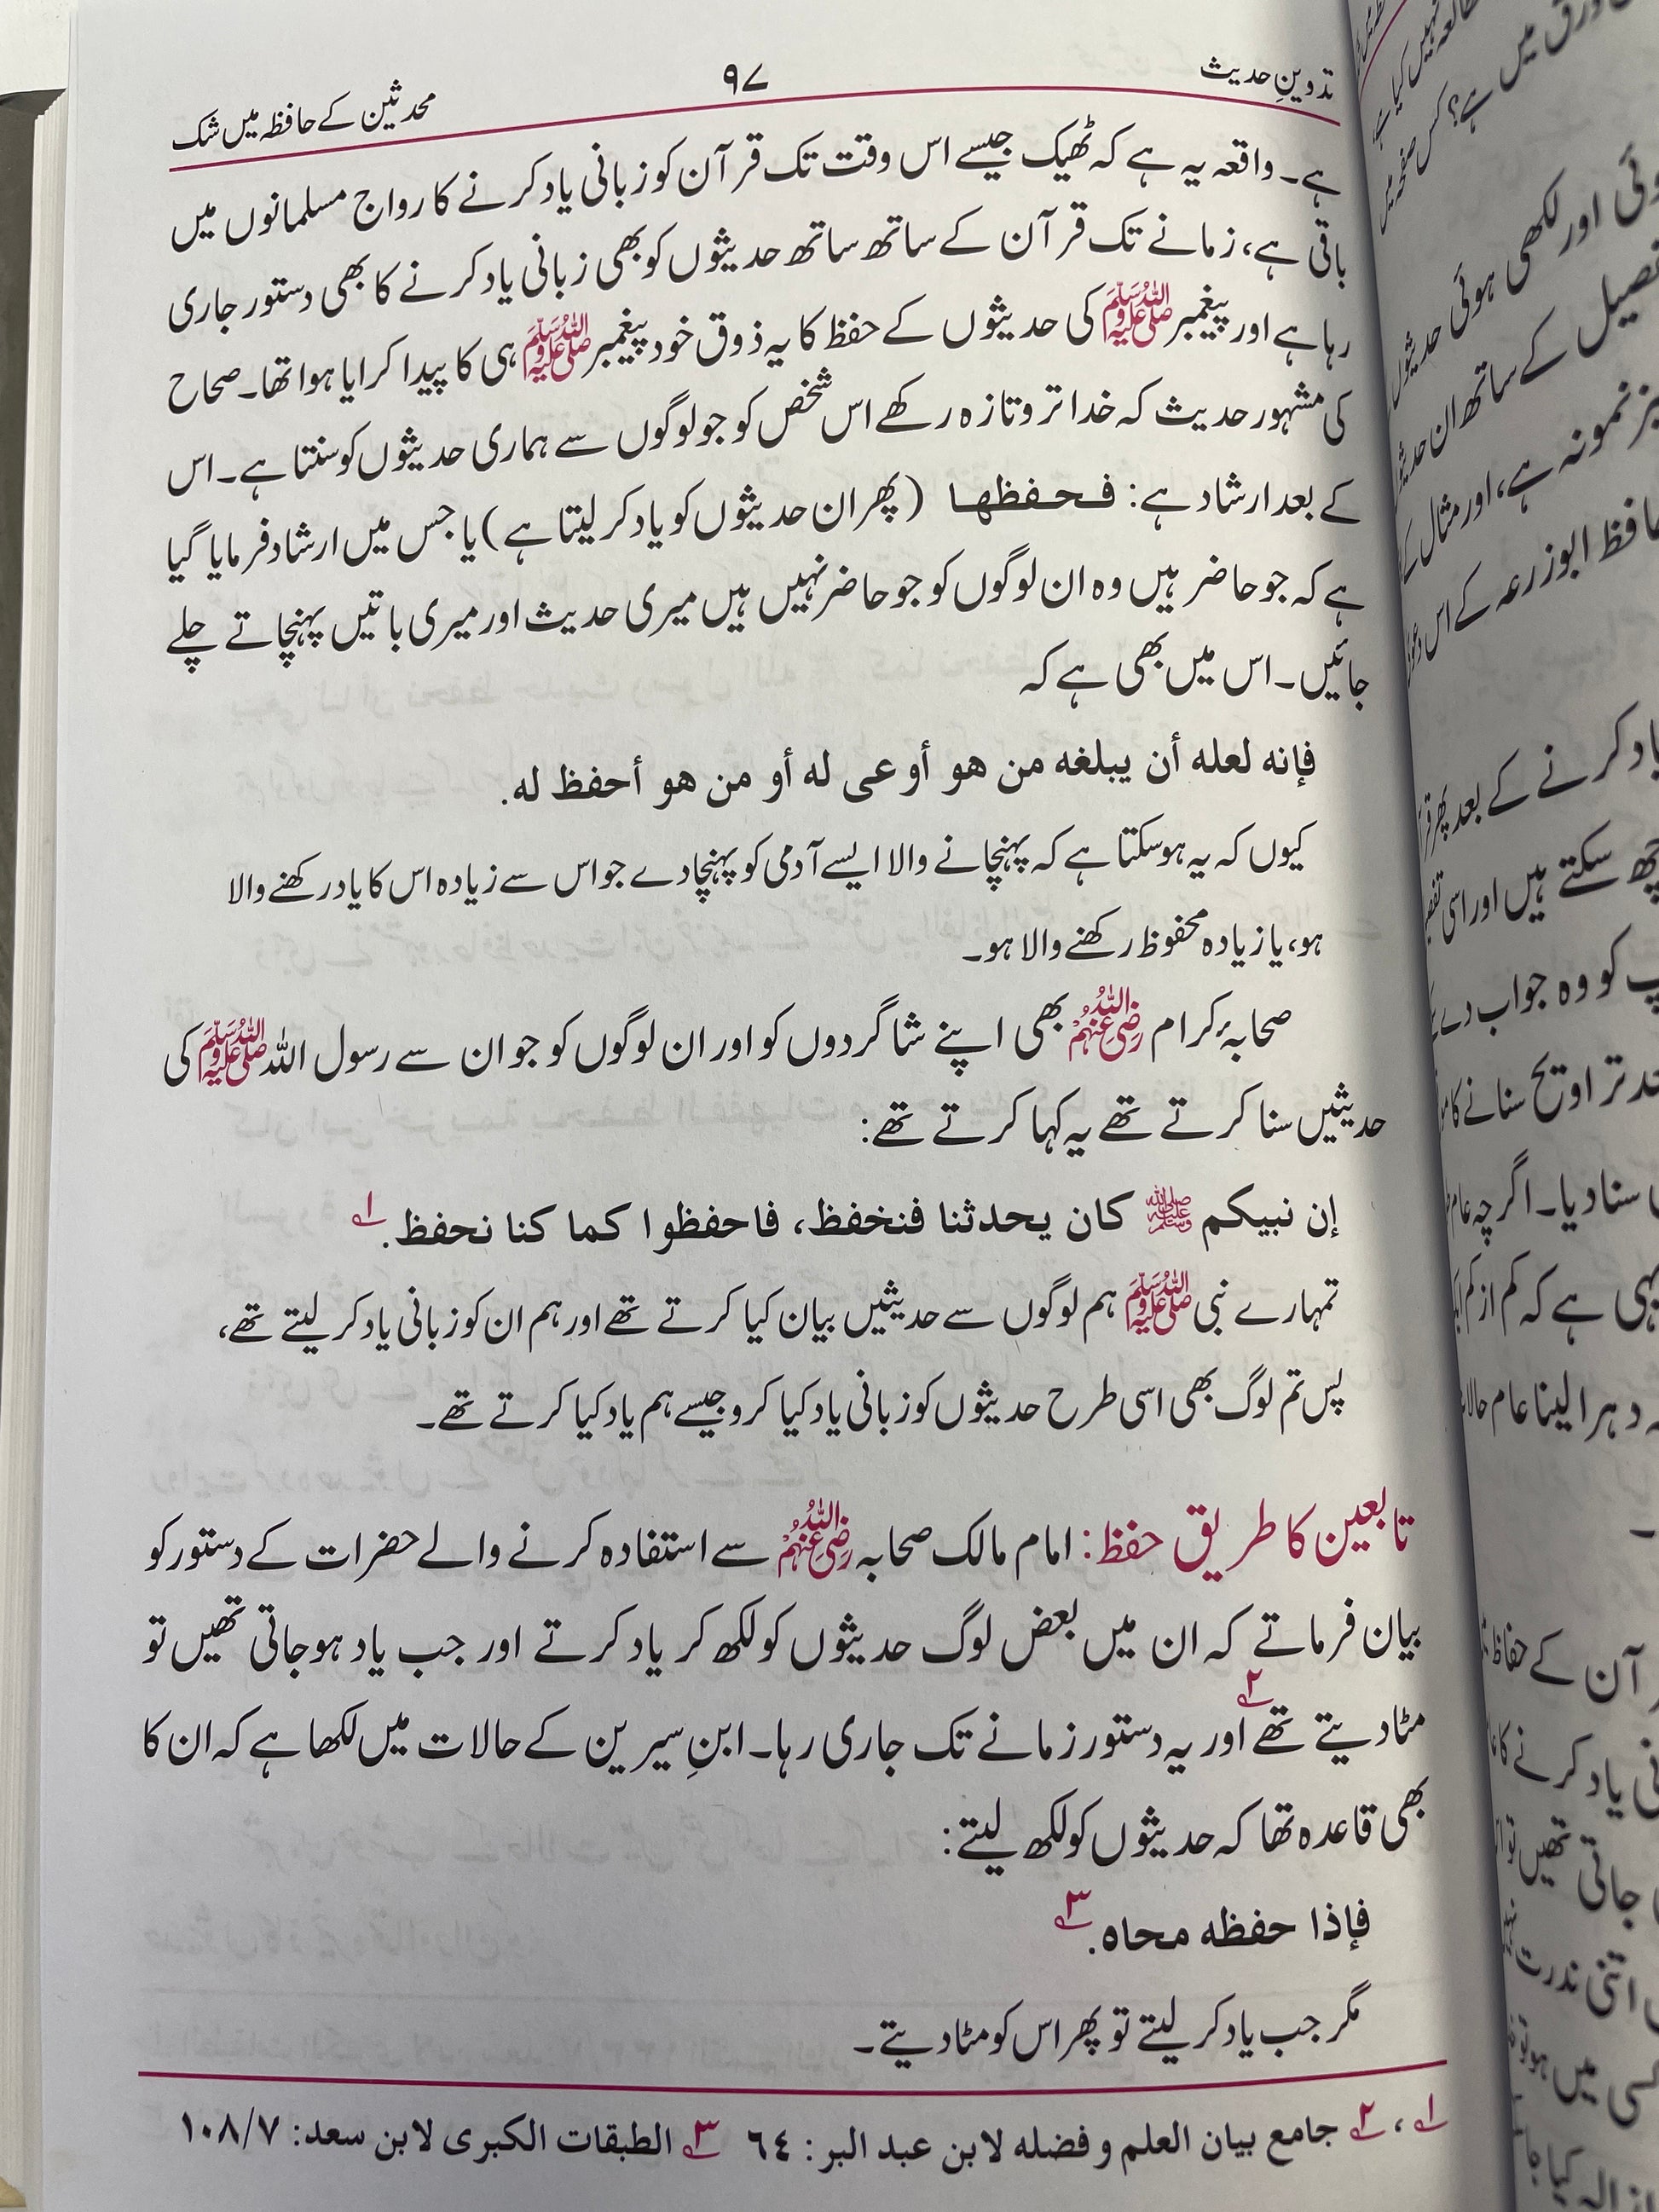 تدوینِ حدیث ۹۷ محدثین کے حافظہ میں شک
ہے۔ واقعہ یہ ہے کہ ٹھیک جیسے اس وقت تک قرآن کو زبانی یاد کرنے کا رواج مسلمانوں میں
باقی ہے، زمانے تک قرآن کے ساتھ ساتھ حدیثوں کو بھی زبانی یاد کرنے کا بھی دستور جاری
رہا ہے اور پیغمبر ﷺ کی حدیثوں کے حفظ کا یہ ذوق خود پیغمبر ﷺ ہی کا پیدا کرایا ہوا تھا۔ صحاح
کی مشہور حدیث کہ خدا تر وتازہ رکھے اس شخص کو جو لوگوں سے ہماری حدیثوں کو سنتا ہے۔ اس
کے بعد ارشاد ہے: فحفظها (پھر ان حدیثوں کو یاد کر لیتا ہے) یا جس میں ارشاد فرمایا گیا
ہے کہ جو حاضر ہیں وہ ان لوگوں کو جو حاضر نہیں ہیں میری حدیث اور میری باتیں پہنچاتے چلے
جائیں۔ اس میں بھی ہے کہ
فإنه لعله أن يبلغه من هو أوعى له أو من هو أحفظ له.
کیوں کہ یہ ہوسکتا ہے کہ پہنچانے والا ایسے آدمی کو پہنچادے جو اس سے زیادہ اس کا یاد رکھنے والا
ہو، یا زیادہ محفوظ رکھنے والا ہو۔
صحابۂ کرام رضی اللہ عنہم بھی اپنے شاگردوں کو اور ان لوگوں کو جو ان سے رسول اللہ ﷺ کی
حدیثیں سنا کرتے تھے یہ کہا کرتے تھے:
إن نبيكم ﷺ كان يحدثنا فنخفظ، فاحفظوا كما كنا نحفظ. ۱
تمہارے نبی ﷺ ہم لوگوں سے حدیثیں بیان کیا کرتے تھے اور ہم ان کو زبانی یاد کر لیتے تھے،
پس تم لوگ بھی اسی طرح حدیثوں کو زبانی یاد کیا کرو جیسے ہم یاد کیا کرتے تھے۔
تابعین کا طریق حفظ: امام مالک صحابہ رضی اللہ عنہم سے استفادہ کرنے والے حضرات کے دستور کو
بیان فرماتے کہ ان میں بعض لوگ حدیثوں کو لکھ کر یاد کرتے اور جب یاد ہوجاتی تھیں تو
مٹادیتے تھے ۲ اور یہ دستور زمانے تک جاری رہا۔ ابنِ سیرین کے حالات میں لکھا ہے کہ ان کا
بھی قاعدہ تھا کہ حدیثوں کو لکھ لیتے:
فإذا حفظه محاه. ۳
مگر جب یاد کر لیتے تو پھر اس کو مٹا دیتے۔
۱، ۲ جامع بيان العلم وفضله لابن عبد البر: ٦٤ ۳ الطبقات الكبرى لابن سعد: ١٠٨/٧